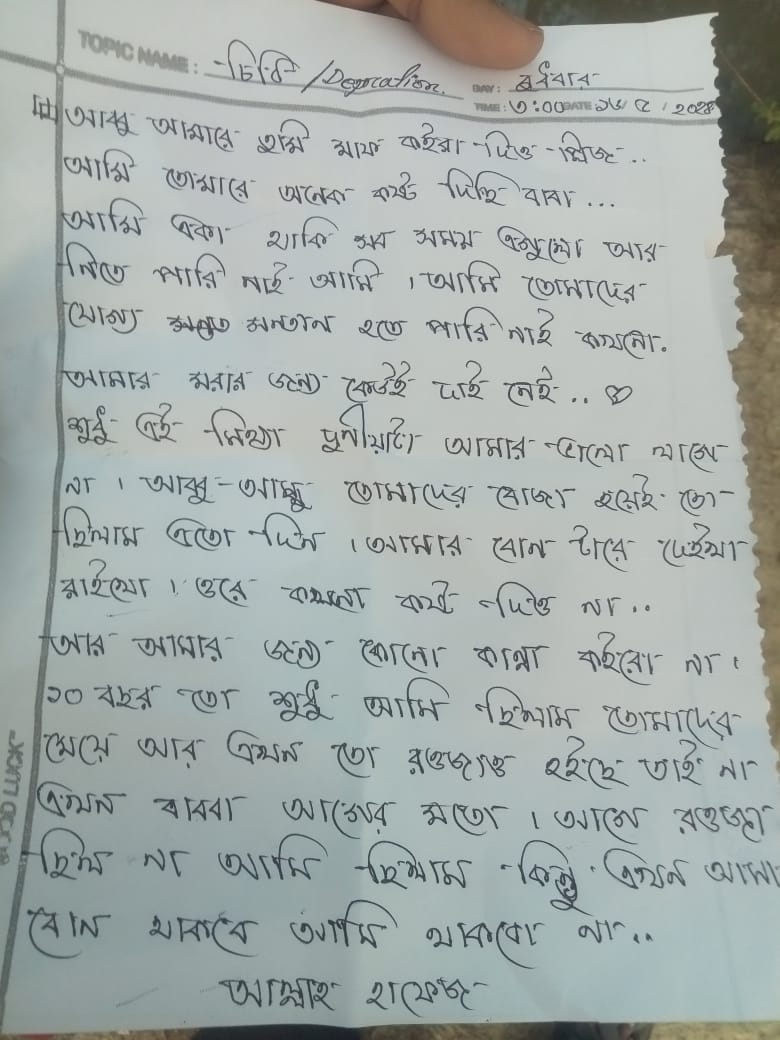 TOPIC NAME : চিঠি / Depocation. DAY : বুধবার
TIME : ৩:০০ DATE ১৬/ ৫ / ২০২৪
আব্বু আমারে তুমি মাফ কইরা দিও প্লিজ..
আমি তোমারে অনেক কষ্ট দিছি বাবা ...
আমি একা থাকি সব সময় এগুলো আর
নিতে পারি নাই আমি । আমি তোমাদের
যোগ্য সন্তান হতে পারি নাই কখনো.
আমার মরার জন্য কেউই দাই নেই .. ♡
শুধু এই মিথ্যা দুনীয়াটা আমার ভালো লাগে
না । আব্বু-আম্মু তোমাদের বোজা হয়েই তো
ছিলাম এতো দিন । আমার বোন টারে দেইখা
রাইখো । ওরে কখনো কষ্ট দিও না..
আর আমার জন্য কোনো কান্না কইরো না ।
১০ বছর তো শুধু আমি ছিলাম তোমাদের
মেয়ে আর এখন তো রওজাও হইছে তাই না
এখন বাববা আগের মতো । আগে রওজা
ছিল না আমি ছিলাম কিন্তু এখন আমা
বোন থাকবে আমি থাকবো না..
আল্লাহ হাফেজ
GOOD LUCK